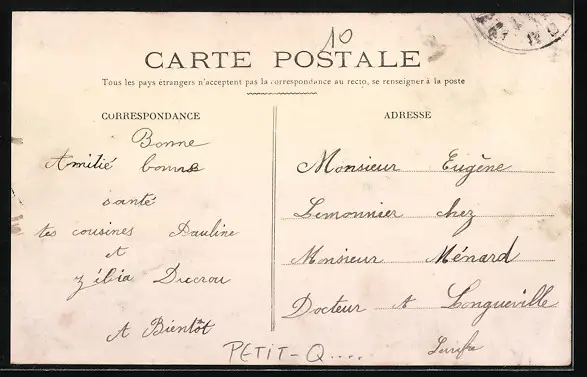 10
CARTE POSTALE
Tous les pays étrangers n'acceptent pas la correspondance au recto, se renseigner à la poste
CORRESPONDANCE
Bonne
Amitié bonne
santé
tes cousines Pauline
et
Zélia Ducrou
A Bientôt
ADRESSE
Monsieur Eugène
Lemonnier chez
Monsieur Ménard
Docteur A Longueville
PETIT-Q....